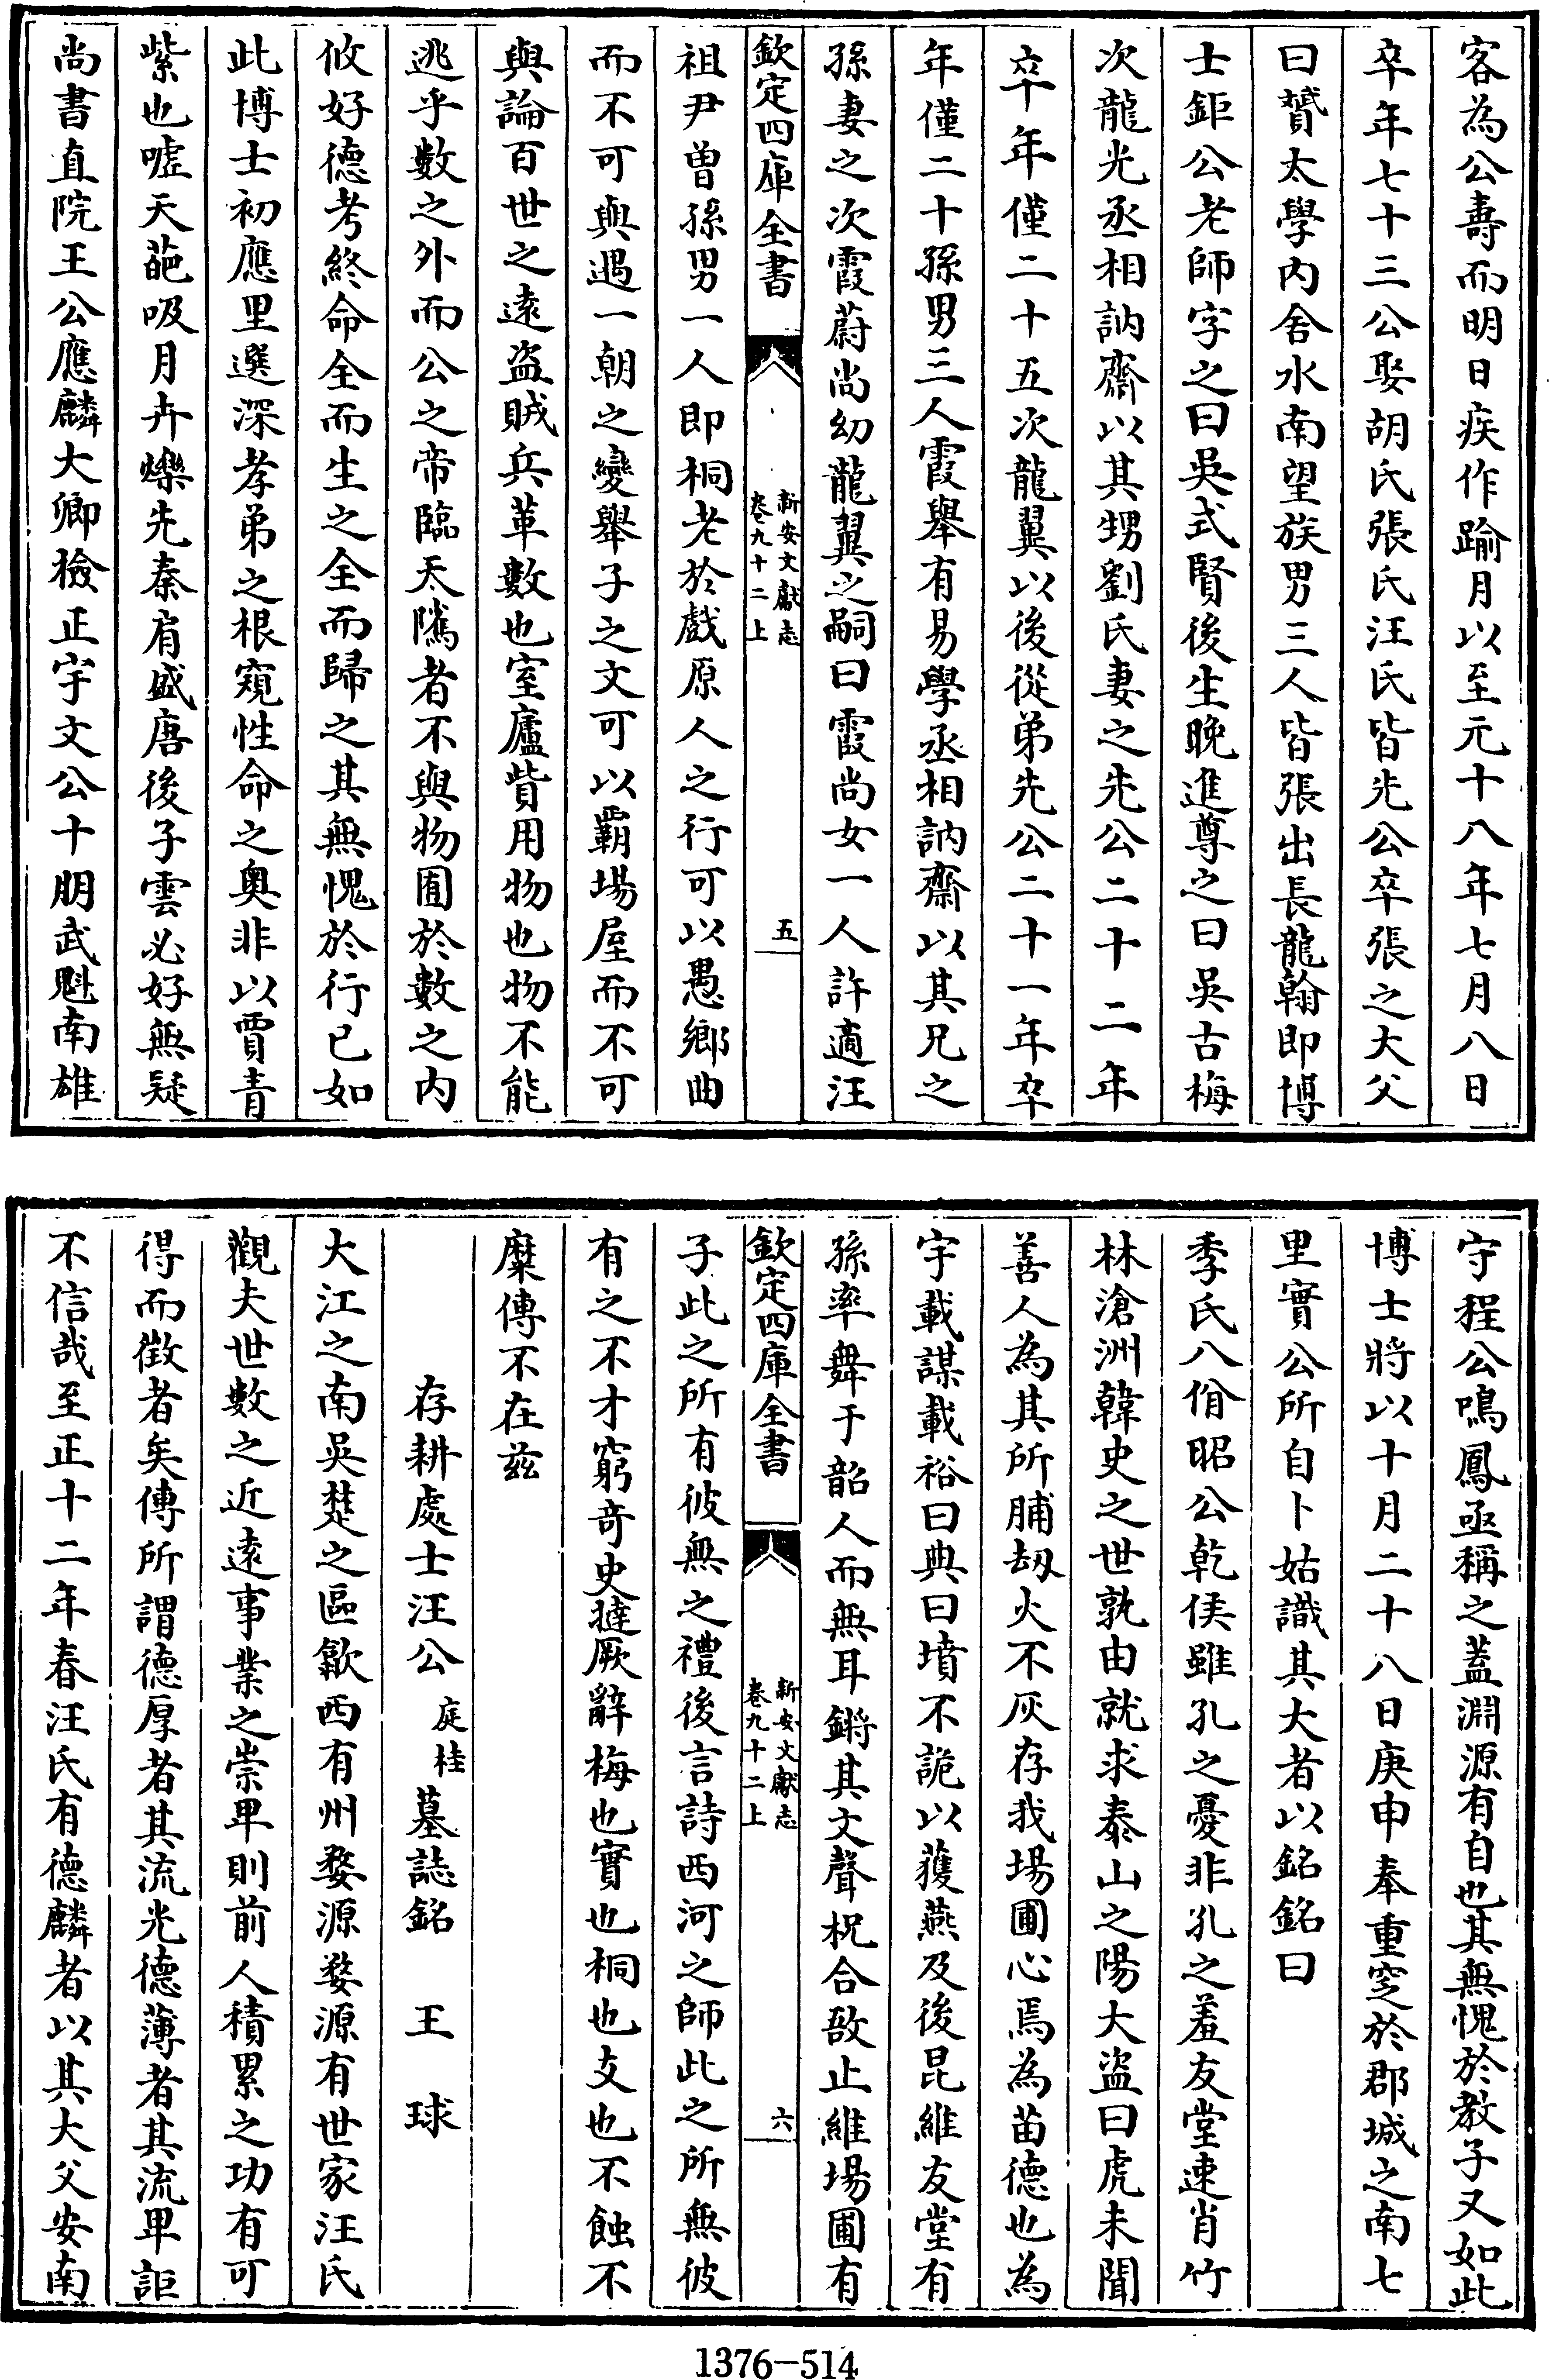 客為公壽而明日疾作踰月以至元十八年七月八日
卒年七十三公娶胡氏張氏汪氏皆先公卒張之大父
曰贇太學内舍水南望族男三人皆張出長龍翰即博
士鉅公老師字之曰吳式賢後生晚進尊之曰吳古梅
次龍光丞相訥齋以其甥劉氏妻之先公二十二年
卒年僅二十五次龍翼以後從弟先公二十一年卒
年僅二十孫男三人霞舉有易學丞相訥齋以其兄之
孫妻之次霞蔚尚幼龍翼之嗣曰霞尚女一人許適汪
欽定四庫全書
新安文獻志
卷九十二上
五
祖尹曽孫男一人即桐老於戲原人之行可以愚鄉曲
而不可與遇一朝之變舉子之文可以霸場屋而不可
與論百世之遠盗賊兵革數也室廬貲用物也物不能
逃乎數之外而公之帝臨天隲者不與物囿於數之内
攸好德考終命全而生之全而歸之其無愧於行已如
此博士初應里選深孝弟之根窺性命之奥非以賈青
紫也嘘天葩吸月卉爍先秦肩盛唐後子雲必好無疑
尚書直院王公應麟大卿檢正宇文公十朋武魁南雄
守程公鳴鳳亟稱之蓋淵源有自也其無愧於教子又如此
博士將以十月二十八日庚申奉重窆於郡城之南七
里實公所自卜姑識其大者以銘銘曰
季氏八佾昭公乾侯雖孔之憂非孔之羞友堂逮肖竹
林滄洲韓史之世孰由就求泰山之陽大盗曰虎未聞
善人為其所脯刼火不灰存我場圃心焉為苗德也為
宇載謀載裕曰典曰墳不詭以獲燕及後昆維友堂有
孫率舞于韶人而無耳鏘其文聲柷合敔止維場圃有
欽定四庫全書
新安文獻志
卷九十二上
六
子此之所有彼無之禮後言詩西河之師此之所無彼
有之不才窮竒史撻厥辭梅也實也桐也支也不蝕不
糜傳不在兹
存耕處士汪公庭桂墓誌銘 王球
大江之南吳楚之區歙西有州婺源婺源有世家汪氏
觀夫世數之近遠事業之崇卑則前人積累之功有可
得而徵者矣傳所謂德厚者其流光德薄者其流卑詎
不信哉至正十二年春汪氏有德麟者以其大父安南
1376-514